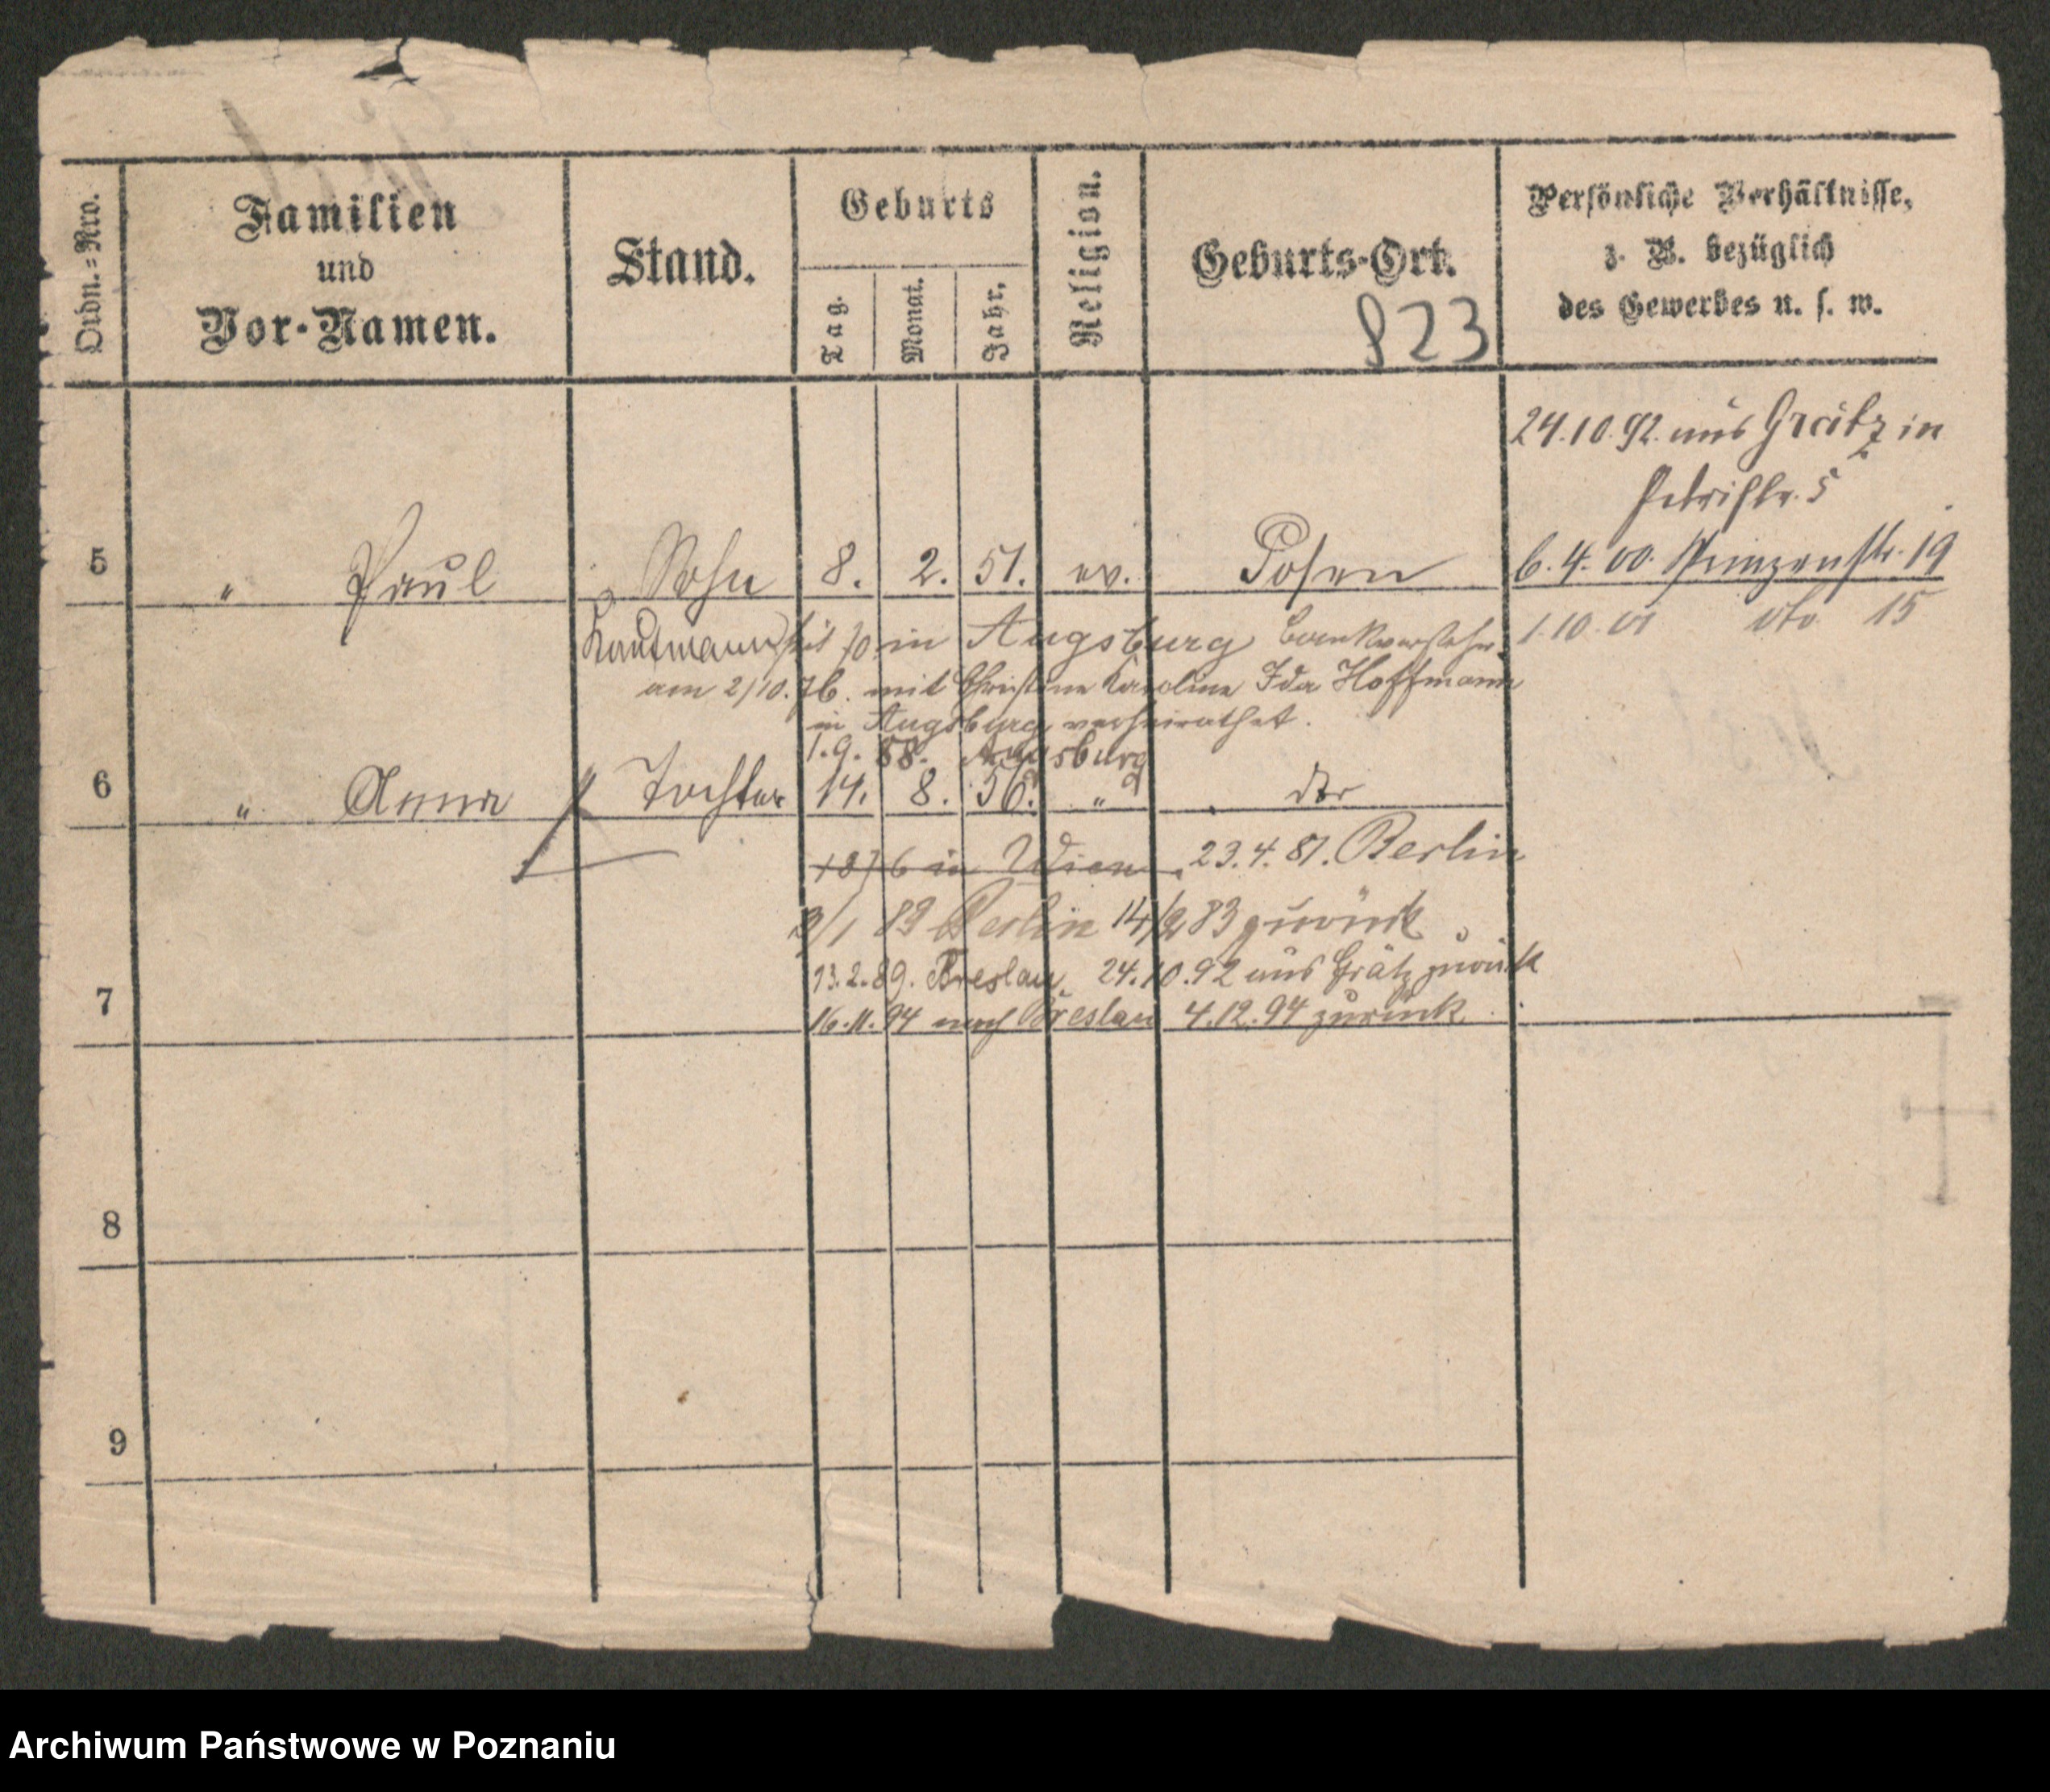 Ordn.=Nro.
Familien
und
Vor-Namen.
Stand.
Geburts
Tag.
Monat.
Jahr.
Religion.
Geburts-Ort.
823
Persönliche Verhältnisse,
z. B. bezüglich
des Gewerbes u. s. w.
24.10.92. aus Grätz in
Petristr. 5
5 " Paul Sohn 8. 2. 51. ev. Posen
6.4.00. Prinzenstr. 19
1.10.01 dto 15
Kaufmann seit 70 in Augsburg
am 2/10. 76. mit Christine Karoline Ida Hoffmann
in Augsburg verheirathet.
1.9.88. Augsburg
6 " Anna Tochter 14. 8. 56. " dto
1876 in Wien. 23.4.81. Berlin
3/1 83 Berlin 14/2 83 zurück
13.2.89. Breslau, 24.10.92 aus Grätz zurück
7
16.11.94 nach Breslau 4.12.94 zurück
8
9
Archiwum Państwowe w Poznaniu